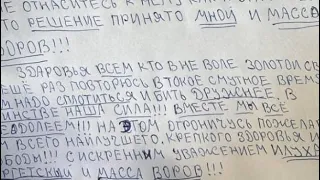 НЕ ОТНАСИТЕСЬ К НЕМУ
ТО РЕШЕНИЕ ПРИНЯТО МНОЙ И МАССА
ВОРОВ!!!
ЗДАРОВЬЯ ВСЕМ КТО В НЕ ВОЛЕ ЗОЛОТОЙ
ЕЩЁ РАЗ ПОВТОРЮСЬ В ТОКОЕ СМУТНОЕ ВРЕМЯ
М НАДО СПЛОТИТЬСЯ И БИТЬ ДРУЖНЕЕ. В
ИНСТВЕ НАША СИЛА!!! ВМЕСТЕ МЫ ВСЁ
ЕОДОЛЕЕМ!!! НА ЭТОМ ОГРОНИЧУСЬ ПОЖЕЛА
М ВСЕГО НАИЛУЧШЕГО, КРЕПКОГО ЗДОРОВЬЯ И
БОДЫ!!! С ИСКРЕННИМ УВАЖЕНИЕМ ИЛУХА
РГЕТСКИЙ И МАССА ВОРОВ!!!